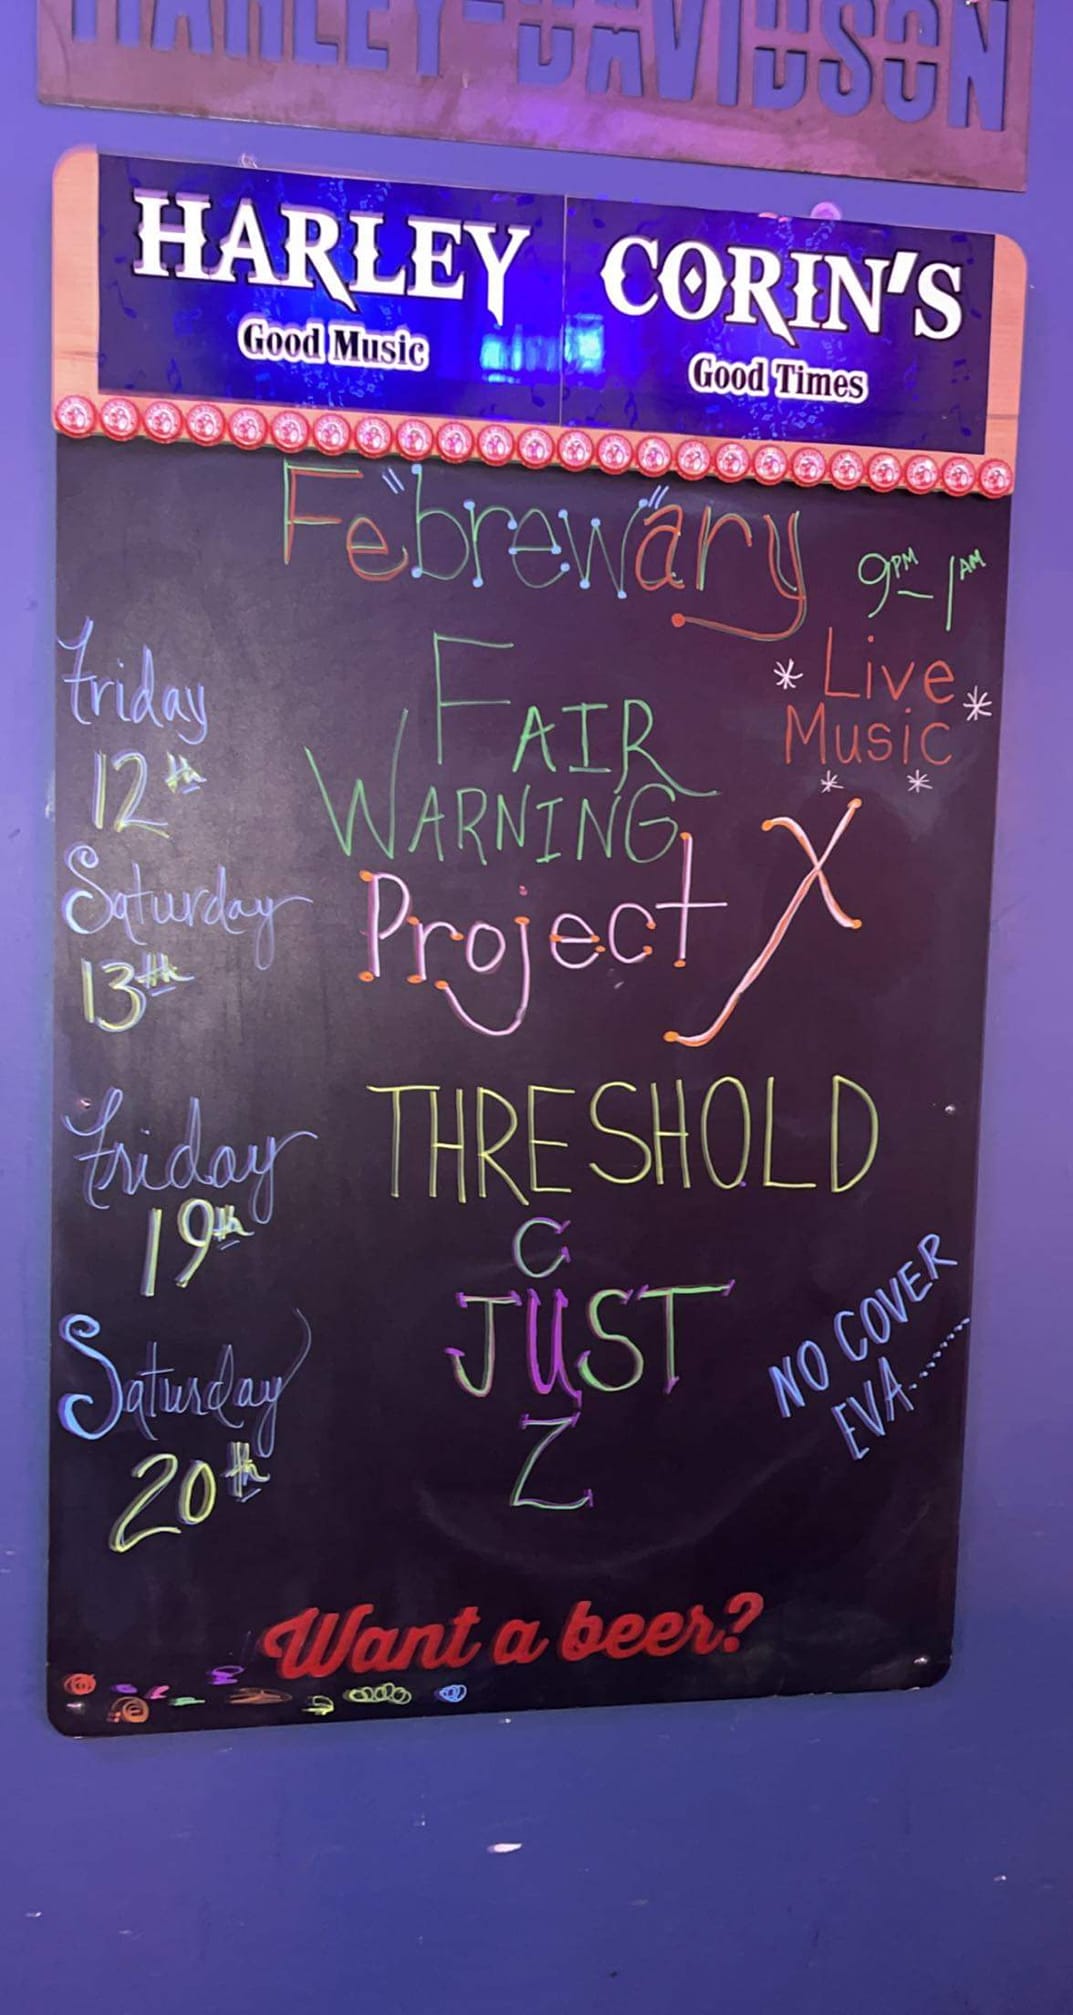 HARLEY-DAVIDSON
HARLEY CORIN'S
Good Music Good Times
Fe"brew"ary
9PM-1AM
* Live *
Music
* *
Friday
12th
FAIR
WARNING
Saturday
13th
Project X
Friday
19th
THRESHOLD
Saturday
20th
C
JUST
Z
NO COVER
EVA........
Want a beer?